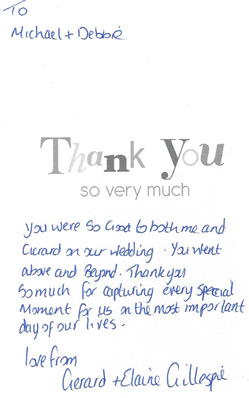 To
Michael + Debbie
Thank you
so very much
you were so Good to both me and
Gerard on our wedding. You went
above and Beyond. Thank you
so much for capturing every special
Moment for us on the most important
day of our lives.
love from
Gerard + Elaine Gillespie